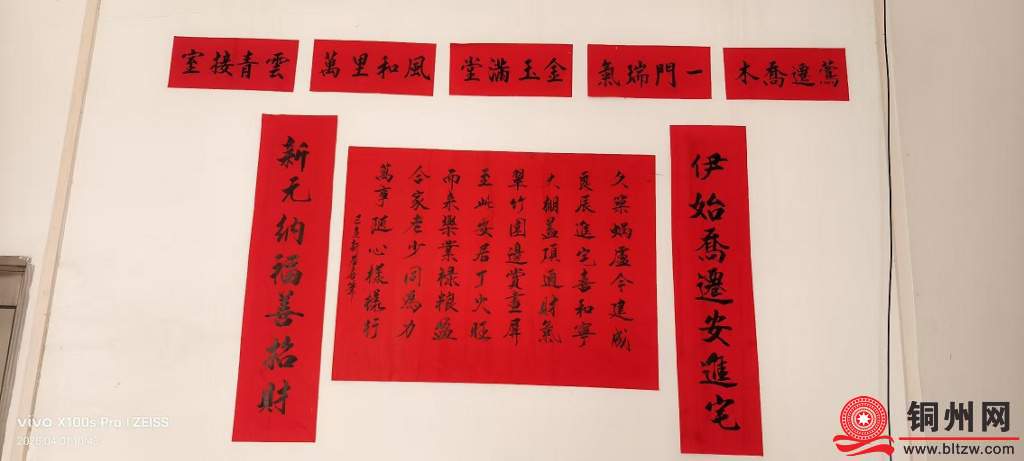 鶯遷喬木
一門瑞氣
金玉滿堂
風和里萬
雲青接室
伊始喬遷安進宅
久築蝸廬今建成
良辰進宅喜和寧
大棚蓋頂通財氣
翠竹園邊賞畫屏
至此安居丁火旺
而來樂業祿粮盈
合家老少同為力
萬亨随心樣樣行
新元納福善招財
vivo X100s Pro | ZEISS
铜州网
www.bltzw.com